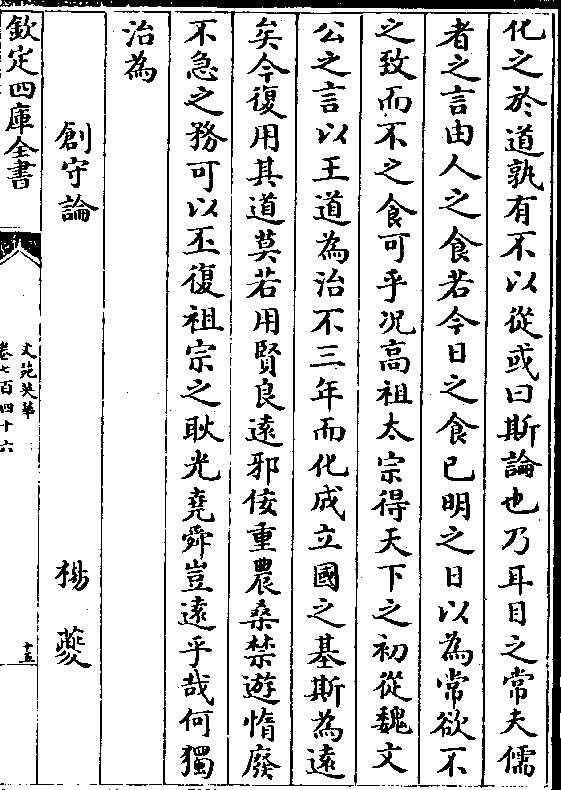 化之於道孰有不以從或曰斯論也乃耳目之常夫儒
者之言由人之食若今日之食已明之日以為常欲不
之致而不之食可乎况高祖太宗得天下之初從魏文
公之言以王道為治不三年而化成立國之基斯為遠
矣今復用其道莫若用賢良遠邪佞重農桑禁遊惰廢
不急之務可以丕復祖宗之耿光堯舜豈遠乎哉何獨
治為
創守論 楊夔
欽定四庫全書
文苑英華
卷七百四十六
十五